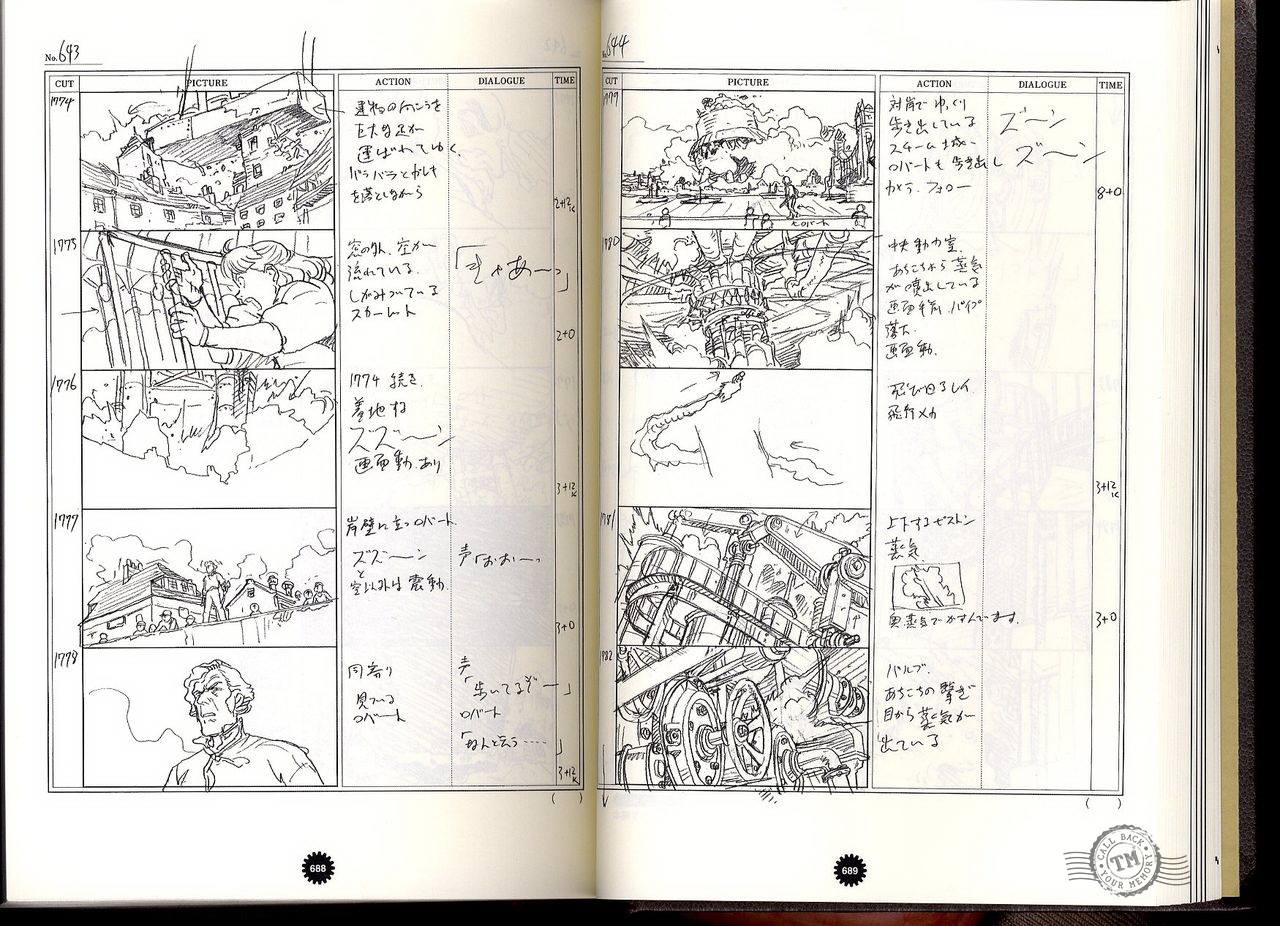 No. 643
CUT PICTURE ACTION DIALOGUE TIME
1774
建物の向こうを
巨大な足が
運ばれてゆく、
バラバラとガレキ
を落としながら
2+12K
1775
窓の外、空が
流れている。
しがみついている
スカーレット
「きゃあーっ」
2+0
1776
1774 続き、
着地する
ズズーン
画面動あり
3+12K
1777
岸壁に立つロバート
ズズーン
と
空以外は震動
声「おおーっ
3+0
1778
同寄り
見ている
ロバート
声
「歩いてるぞー」
ロバート
「なんと云う……」
3+12K
( )
688
No. 644
CUT PICTURE ACTION DIALOGUE TIME
1779
対岸で ゆっくり
歩き出している
スチーム城、
ロバートも歩き出し
カメラ、フォロー
ズーン
ズーン
ロバート
8+0
1780
中央動力室、
あちこちから蒸気
が噴出している
画面手前、パイプ
落下、
画面動、
飛び回るレイ
飛行メカ
3+12K
1781
上下するピストン
蒸気
奥蒸気でかすんでいます。
3+0
1782
バルブ、
あちこちの繋ぎ
目から蒸気が
出ている
( )
689
CALL BACK
TM
YOUR MEMORY